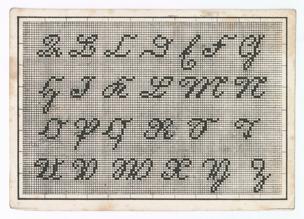 A B C D E F G
H I K L M N
O P Q R S T
U V W X Y Z